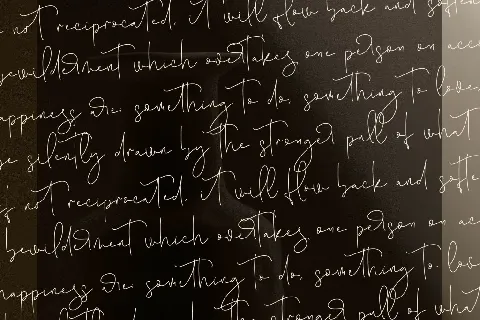 not reciprocated. it will flow back and soften
bewilderment which overtakes one person on acc
appiness are: something to do, something to love
silently drawn by the stronger pull of what
not reciprocated. it will flow back and softe
bewilderment which overtakes one person on acc
happiness are: something to do, something to lov
the stronger pull of what